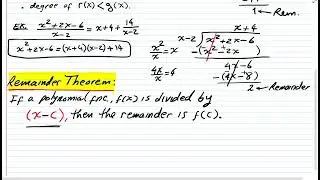 degree of r(x) < g(x).
1 ← Rem.
Ex. x²+2x-6 / x-2 = x+4+ 14 / x-2
x²+2x-6 = (x+4)(x-2)+14
x+4
x-2 x²+2x-6
x²/x = x -(x²-2x)
4x/x = 4 4x-6
-(4x-8)
2 ← Remainder
Remainder Theorem:
If a polynomial fnc., f(x) is divided by
(x-c), then the remainder is f(c).